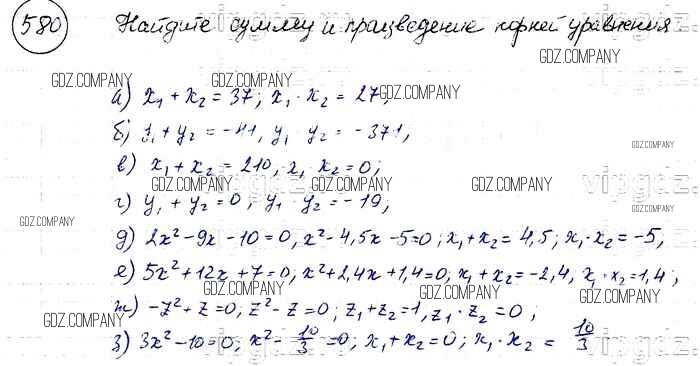 580 Найдите сумму и произведение корней уравнения
GDZ.COMPANY GDZ.COMPANY GDZ.COMPANY GDZ.COMPANY
а) x₁ + x₂ = 37; x₁ · x₂ = 27,
б) y₁ + y₂ = -41, y₁ y₂ = -371,
GDZ.COMPANY
в) x₁ + x₂ = 210, x₁ x₂ = 0;
GDZ.COMPANY GDZ.COMPANY GDZ.COMPANY
vipgdz. vipgdz.
г) y₁ + y₂ = 0, y₁ y₂ = -19,
GDZ.COMPANY GDZ.COMPANY
д) 2x² - 9x - 10 = 0, x² - 4,5x - 5 = 0; x₁ + x₂ = 4,5; x₁ · x₂ = -5,
е) 5x² + 12x + 7 = 0, x² + 2,4x + 1,4 = 0; x₁ + x₂ = -2,4, x₁ · x₂ = 1,4;
GDZ.COMPANY GDZ.COMPANY GDZ.COMPANY
ж) -z² + z = 0; z² - z = 0; z₁ + z₂ = 1, z₁ · z₂ = 0;
GDZ.COMPANY GDZ.COMPANY GDZ.COMPANY
з) 3x² - 10 = 0; x² - 10/3 = 0; x₁ + x₂ = 0; x₁ · x₂ = 10/3